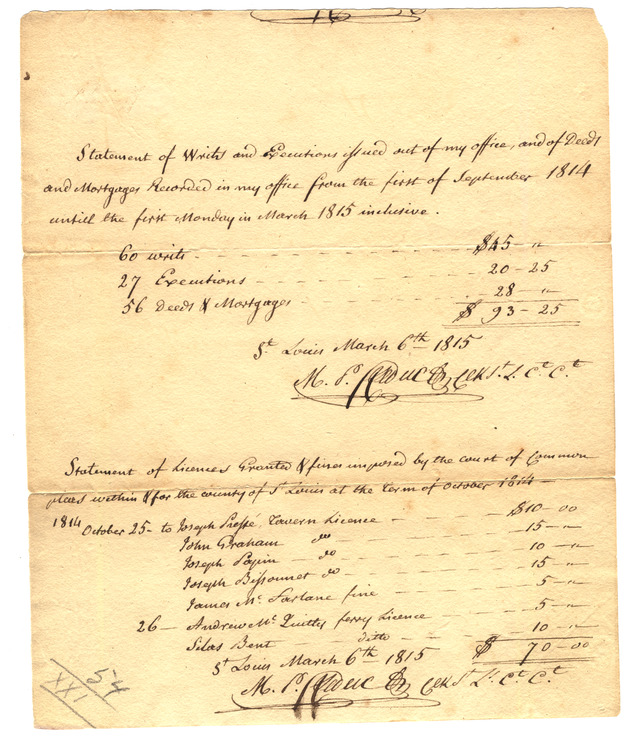 Statement of Writs and Executions issued out of my office, and of Deeds
and Mortgages Recorded in my office from the first of September 1814
untill the first Monday in March 1815 inclusive.
60 writs - - - $45 - "
27 Executions - - - 20 - 25
56 Deeds & Mortgages - - - 28 - "
$ 93 - 25
St. Louis March 6th 1815
M. P. Leduc Clk St. L. Ct. Ct.
Statement of Licences Granted & fines imposed by the court of Common
pleas within & for the county of St Louis at the Term of October 1814 -
1814
October 25 - to Joseph Tavern Licence - - $10 - 00
John Graham do - - 15 - "
Joseph Papin - do - - 10 - "
Joseph Bissonnet do - - 15 - "
James Mc. Farlane fine - - 5 - "
26 - Andrew Mc. ferry Licence - - 5 - "
Silas Bent ditto - - 10 - "
St Louis March 6th 1815 $ 70 - 00
M. P. Leduc Clk St. L. Ct. Ct.
54
XXI